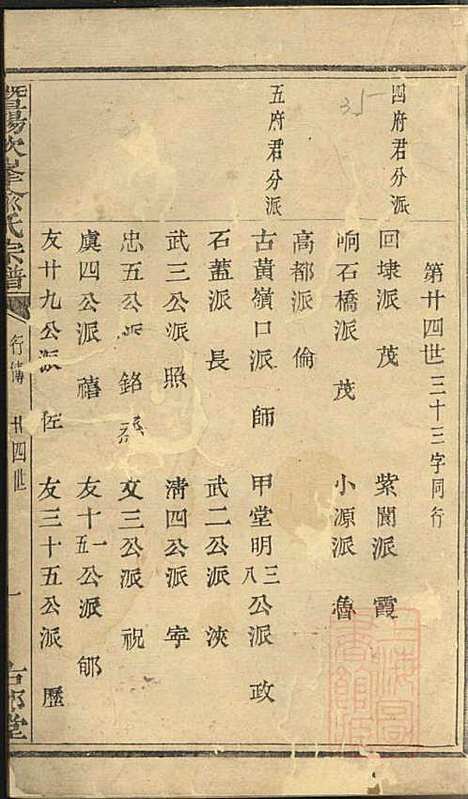 第廿四世三十三字同行
四府君分派
回埭派茂 紫閬派霞
响石橋派茂 小源派魯
高都派倫
五府君分派
古黃嶺口派師 甲堂明三八公派政
石蓄派長 武二公派浹
武三公派照 清四公派寧
忠五公派銘 文三公派祝
虞四公派禧 友十一五公派郇
友廿九公派佐 友三十五公派歷
暨陽次峯俞氏宗譜
行傳 廿四世
一
35